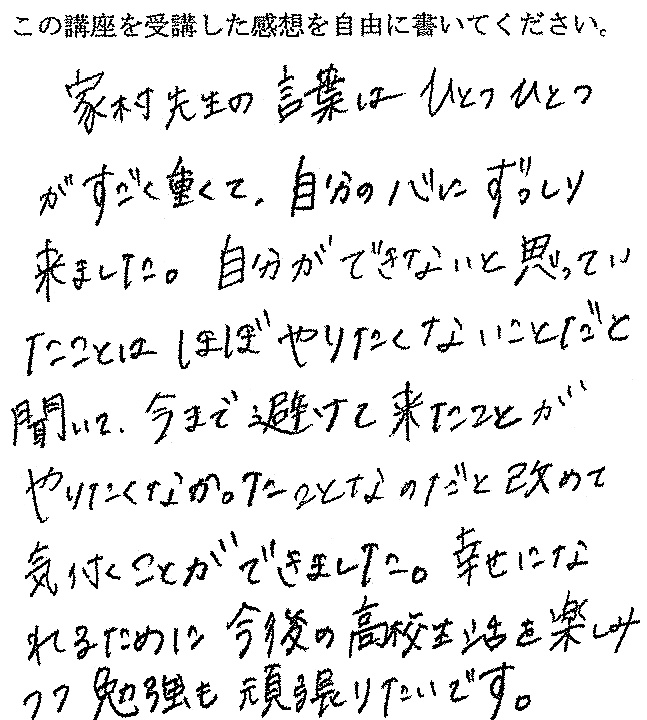 この講座を受講した感想を自由に書いてください。
家村先生の言葉はひとつひとつ
がすごく重くて、自分の心にずっしり
来ました。自分ができないと思ってい
たことはほぼやりたくないことだと
聞いて、今まで避けて来たことが
やりたくなかったことなのだと改めて
気付くことができました。幸せにな
れるために今後の高校生活を楽しみ
つつ勉強も頑張りたいです。